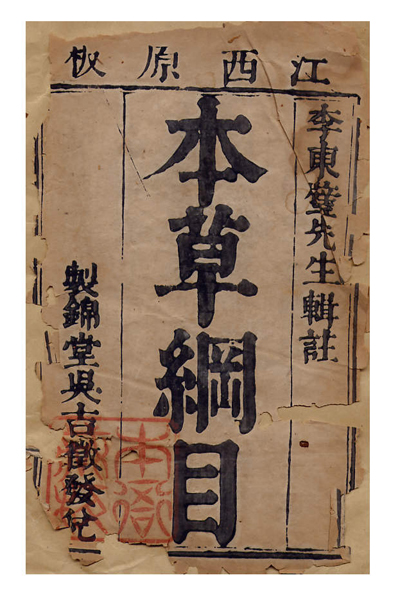 江西原板
李東璧先生輯註
本草綱目
製錦堂吳古徵發兌